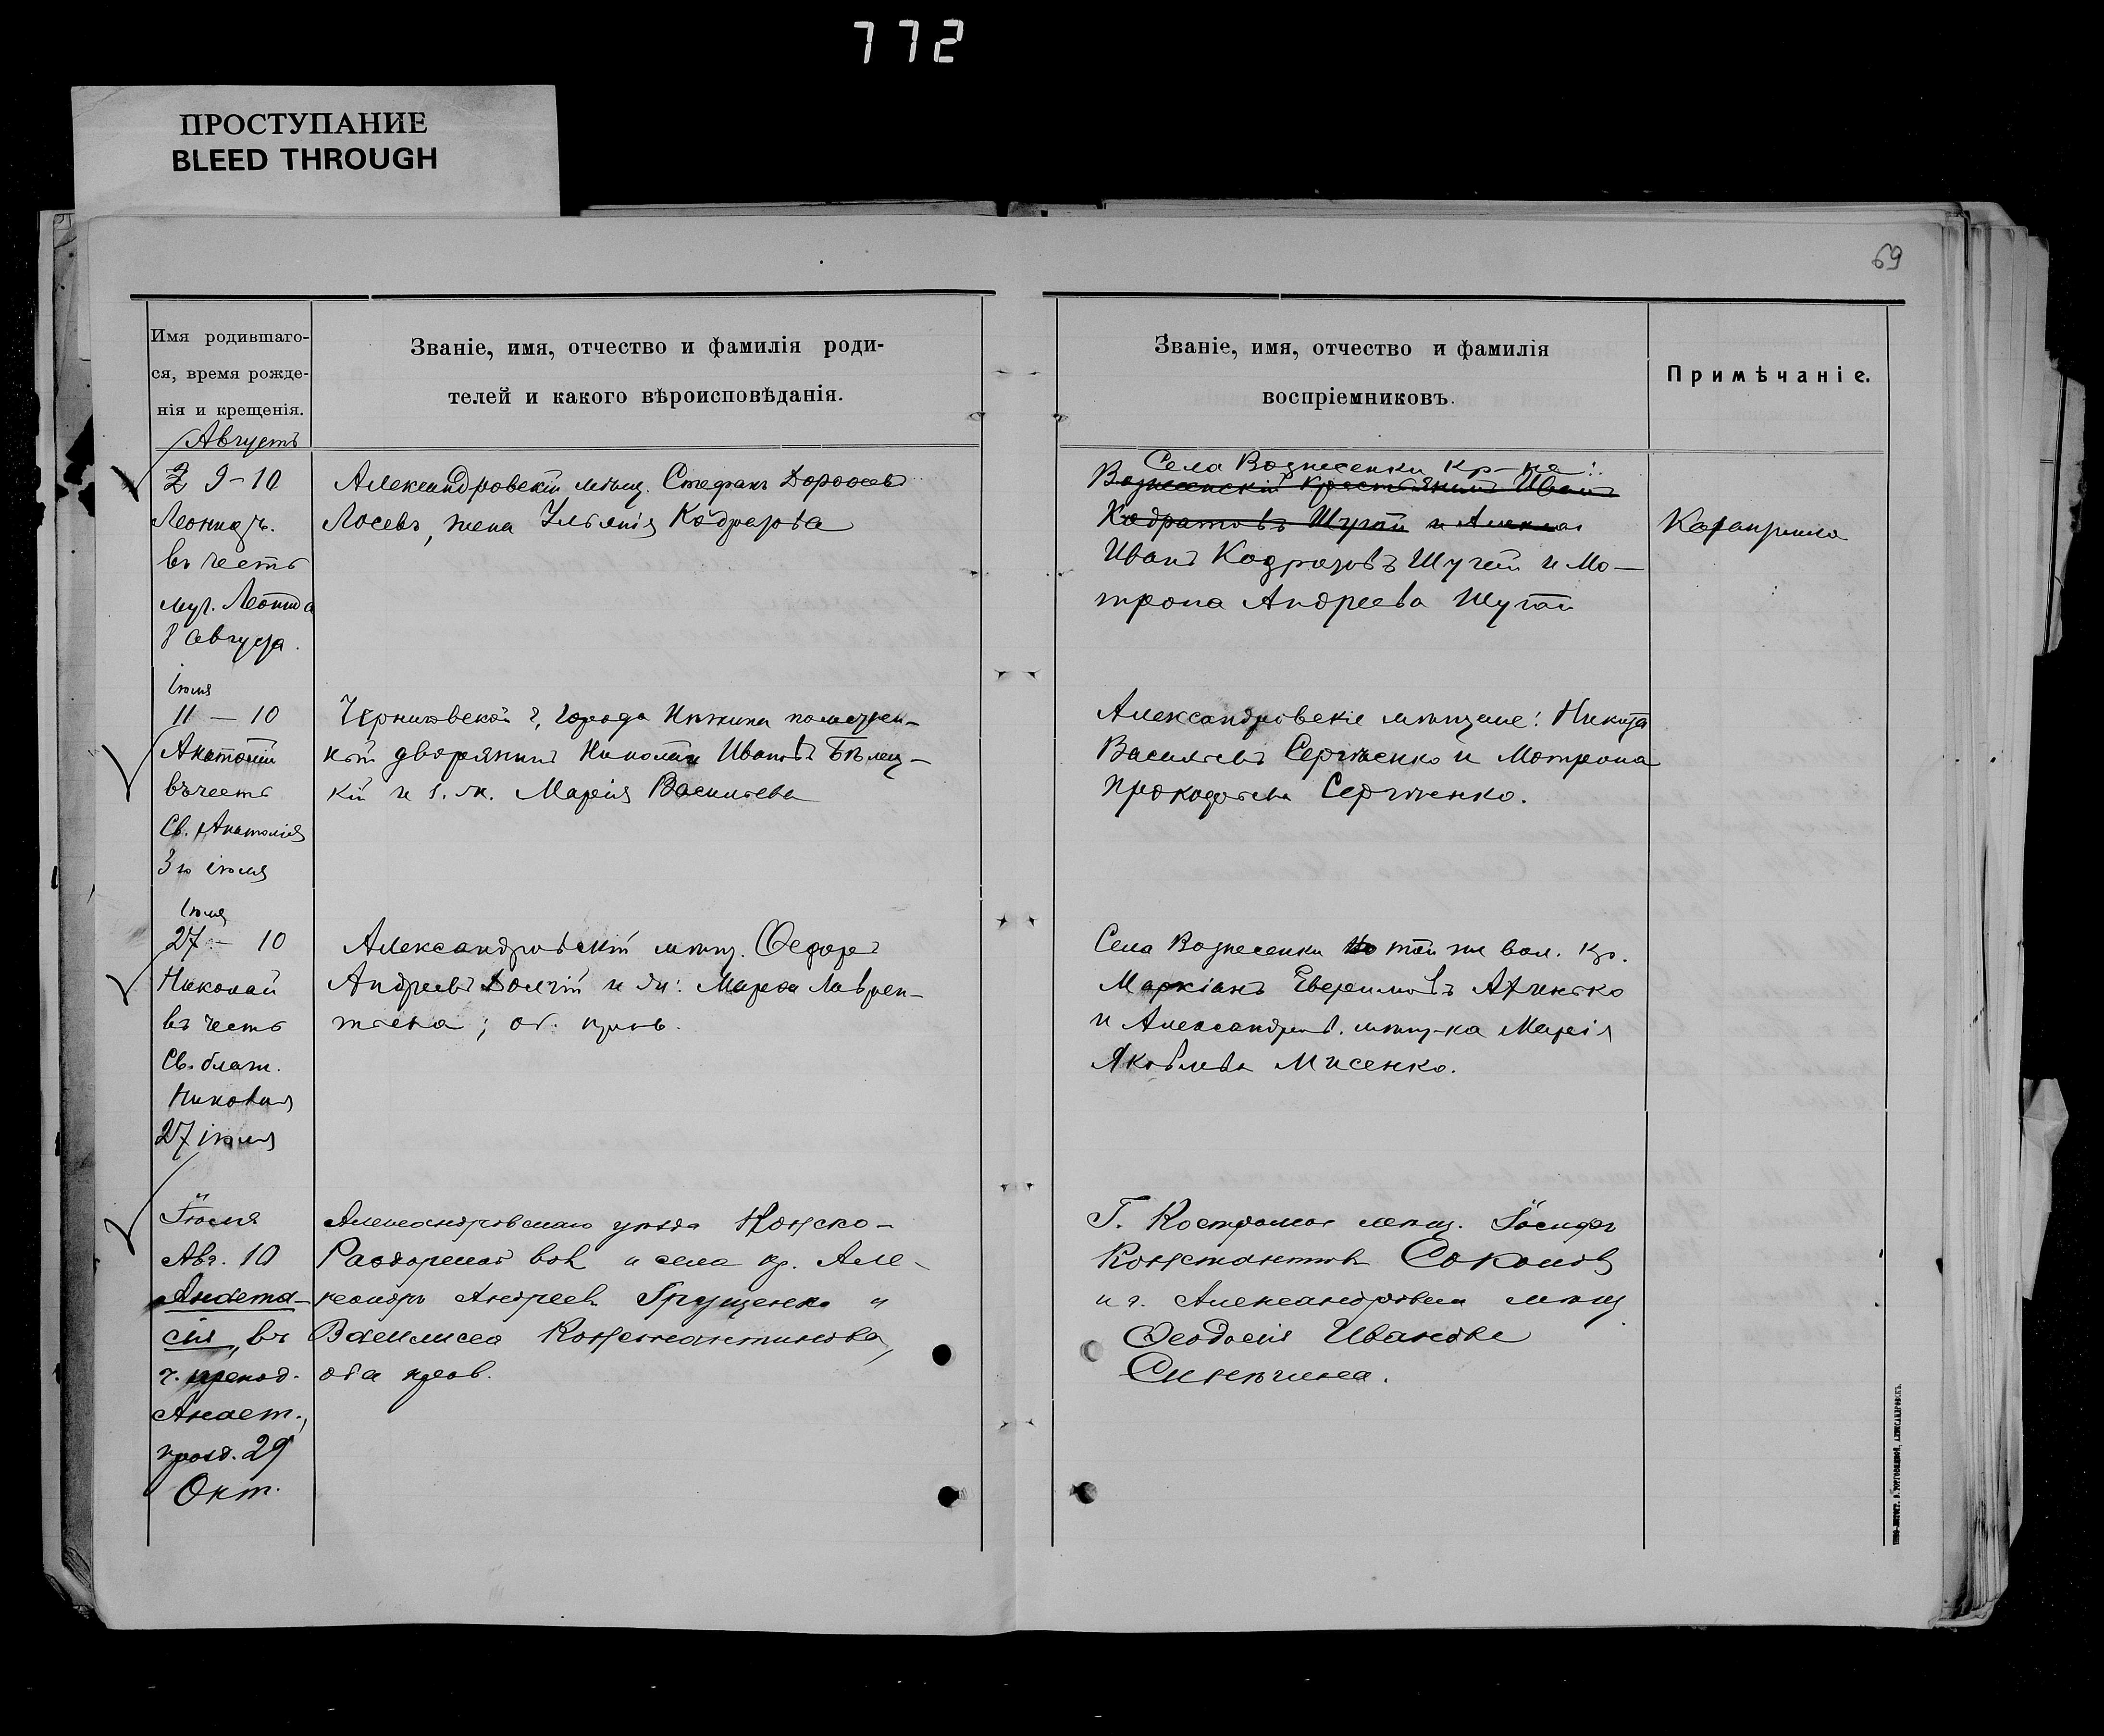 772
ПРОСТУПАНИЕ
BLEED THROUGH
69
Имя родившаго-
ся, время рожде-
нія и крещенія.
Званіе, имя, отчество и фамилія роди-
телей и какого вѣроисповѣданія.
Званіе, имя, отчество и фамилія
воспріемниковъ.
Примѣчаніе.
Августъ
9-10
Леонидъ.
въ честь
муч. Леонида
8 августа.
Александровскій мѣщ. Стефанъ
Лосевъ, жена
Села Вознесенки кр-не:
Вознесенскій крестьянинъ Иванъ
Шугай и
Иванъ Шугай и Мо-
трона Андреева Шугай
Іюля
11 — 10
Анатолій
въ честь
Св. Анатолія
3го іюля
Черниговской г. города Нѣжина
дворянинъ Николай Ивановъ Бѣлец-
кій и з. ж. Марія Васильева
Александровскіе мѣщане: Никита
Васильевъ Сергіенко и Мотрона
Прокофьева Сергіенко.
Іюля
27 — 10
Николай
въ честь
Св. блаж.
Николая
27 іюля
Александровскій мѣщ. Федоръ
Андреевъ Долгій и Марфа Лаврен-
тьева; об. прав.
Села Вознесенки той же вол. кр.
Маркіанъ
и Александров. мѣщ-ка Марія
Яковлева Мисенко.
Іюля
Авг. 10
Анаста-
сія, въ
ч. препод.
Анаст.,
празд. 29
Окт.
Александровскаго уѣзда Конско-
Раздорской вол. и села кр. Але-
ксандръ Андреевъ Грущенко и
Василиса Константинова,
оба прав.
Г. Костромы мѣщ. Іосифъ
Константиновъ Соколовъ
и г. Александровска мѣщ.
Феодосія Иванова